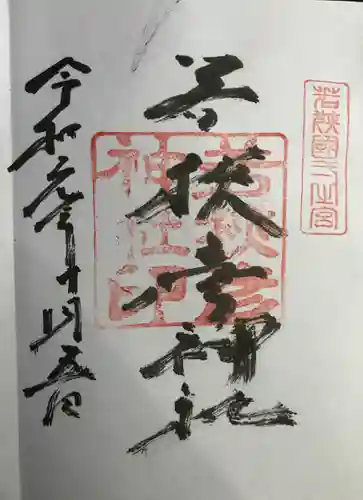 若狭國一之宮
若狭彦神社
若狭彦神社印
令和元年十月五日